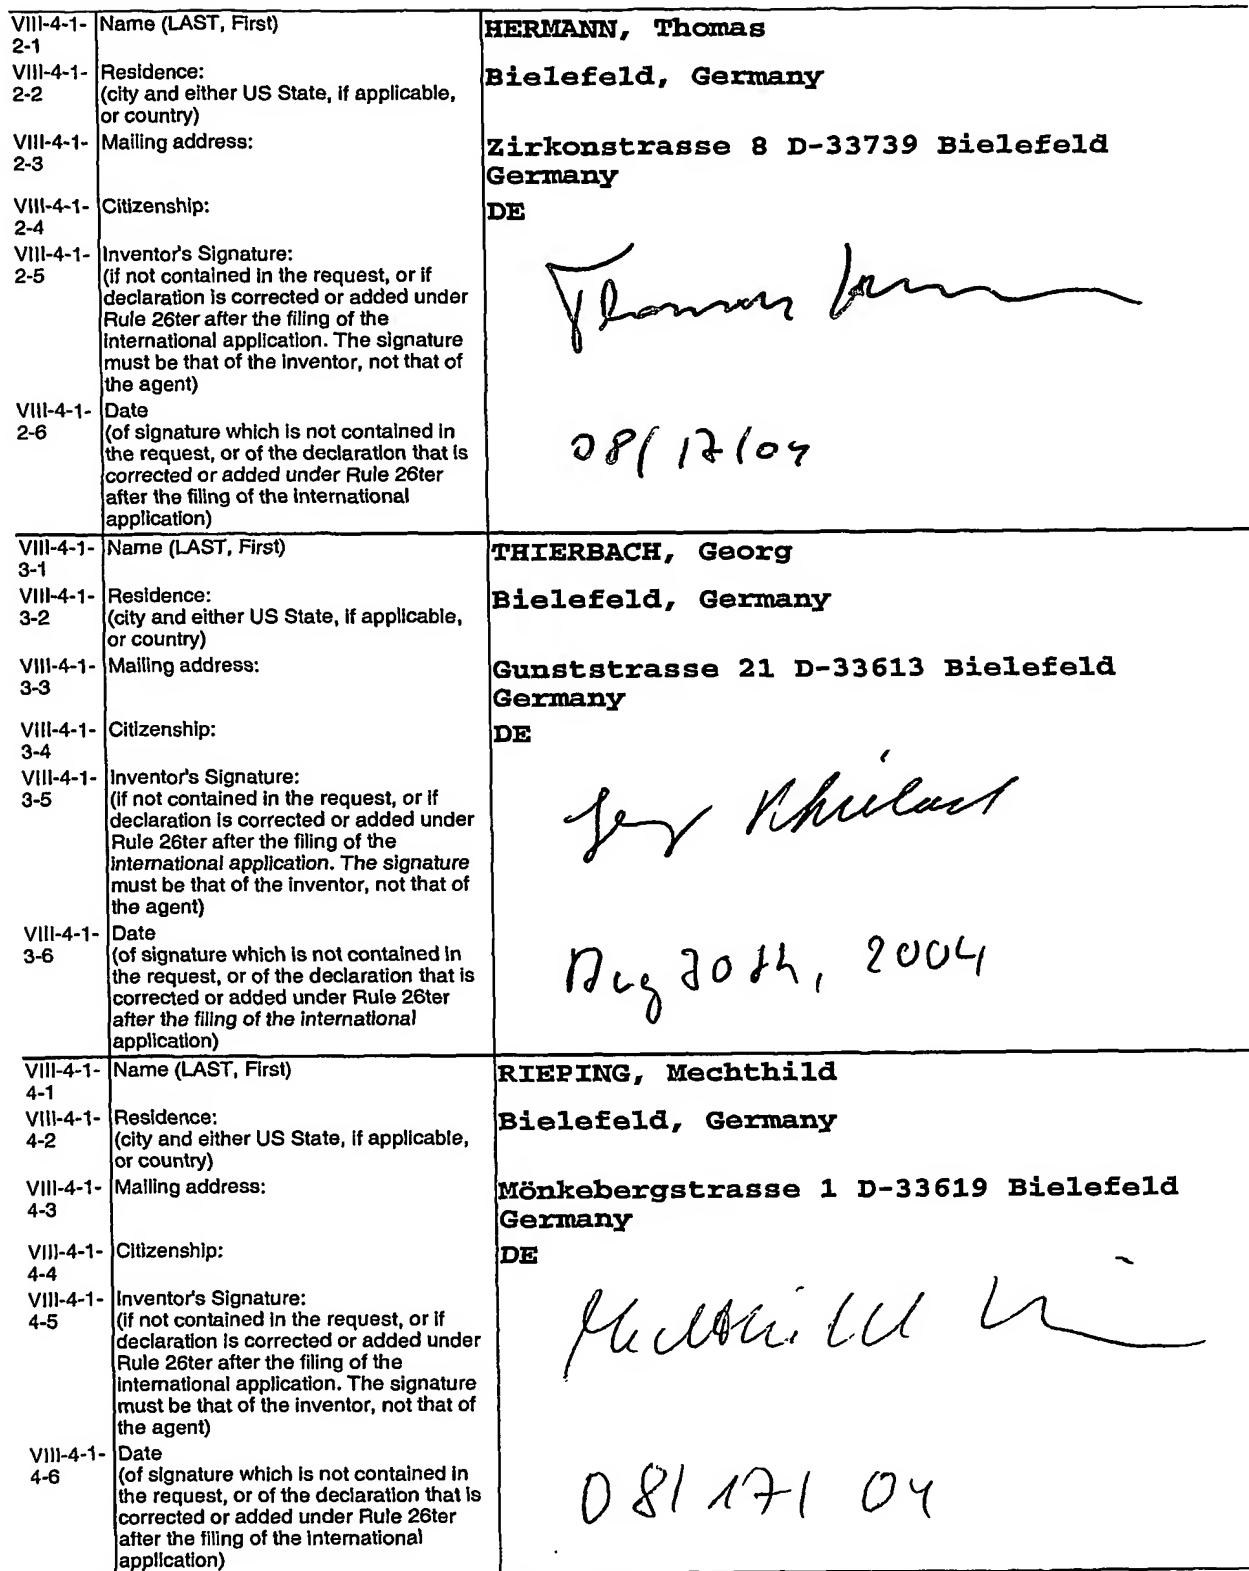 VIII-4-1- Name (LAST, First) HERMANN, Thomas
2-1
VIII-4-1- Residence: Bielefeld, Germany
2-2 (city and either US State, if applicable,
or country)
VIII-4-1- Mailing address: Zirkonstrasse 8 D-33739 Bielefeld
2-3 Germany
VIII-4-1- Citizenship: DE
2-4
VIII-4-1- Inventor's Signature:
2-5 (if not contained in the request, or if
declaration is corrected or added under
Rule 26ter after the filing of the
international application. The signature
must be that of the inventor, not that of
the agent)
Thomas
VIII-4-1- Date
2-6 (of signature which is not contained in
the request, or of the declaration that is
corrected or added under Rule 26ter
after the filing of the international
application)
08/17/04
VIII-4-1- Name (LAST, First) THIERBACH, Georg
3-1
VIII-4-1- Residence: Bielefeld, Germany
3-2 (city and either US State, if applicable,
or country)
VIII-4-1- Mailing address: Gunststrasse 21 D-33613 Bielefeld
3-3 Germany
VIII-4-1- Citizenship: DE
3-4
VIII-4-1- Inventor's Signature:
3-5 (if not contained in the request, or if
declaration is corrected or added under
Rule 26ter after the filing of the
international application. The signature
must be that of the inventor, not that of
the agent)
VIII-4-1- Date
3-6 (of signature which is not contained in
the request, or of the declaration that is
corrected or added under Rule 26ter
after the filing of the international
application)
Aug 30th, 2004
VIII-4-1- Name (LAST, First) RIEPING, Mechthild
4-1
VIII-4-1- Residence: Bielefeld, Germany
4-2 (city and either US State, if applicable,
or country)
VIII-4-1- Mailing address: Mönkebergstrasse 1 D-33619 Bielefeld
4-3 Germany
VIII-4-1- Citizenship: DE
4-4
VIII-4-1- Inventor's Signature:
4-5 (if not contained in the request, or if
declaration is corrected or added under
Rule 26ter after the filing of the
international application. The signature
must be that of the inventor, not that of
the agent)
Mechthild
VIII-4-1- Date
4-6 (of signature which is not contained in
the request, or of the declaration that is
corrected or added under Rule 26ter
after the filing of the international
application)
08/17/04